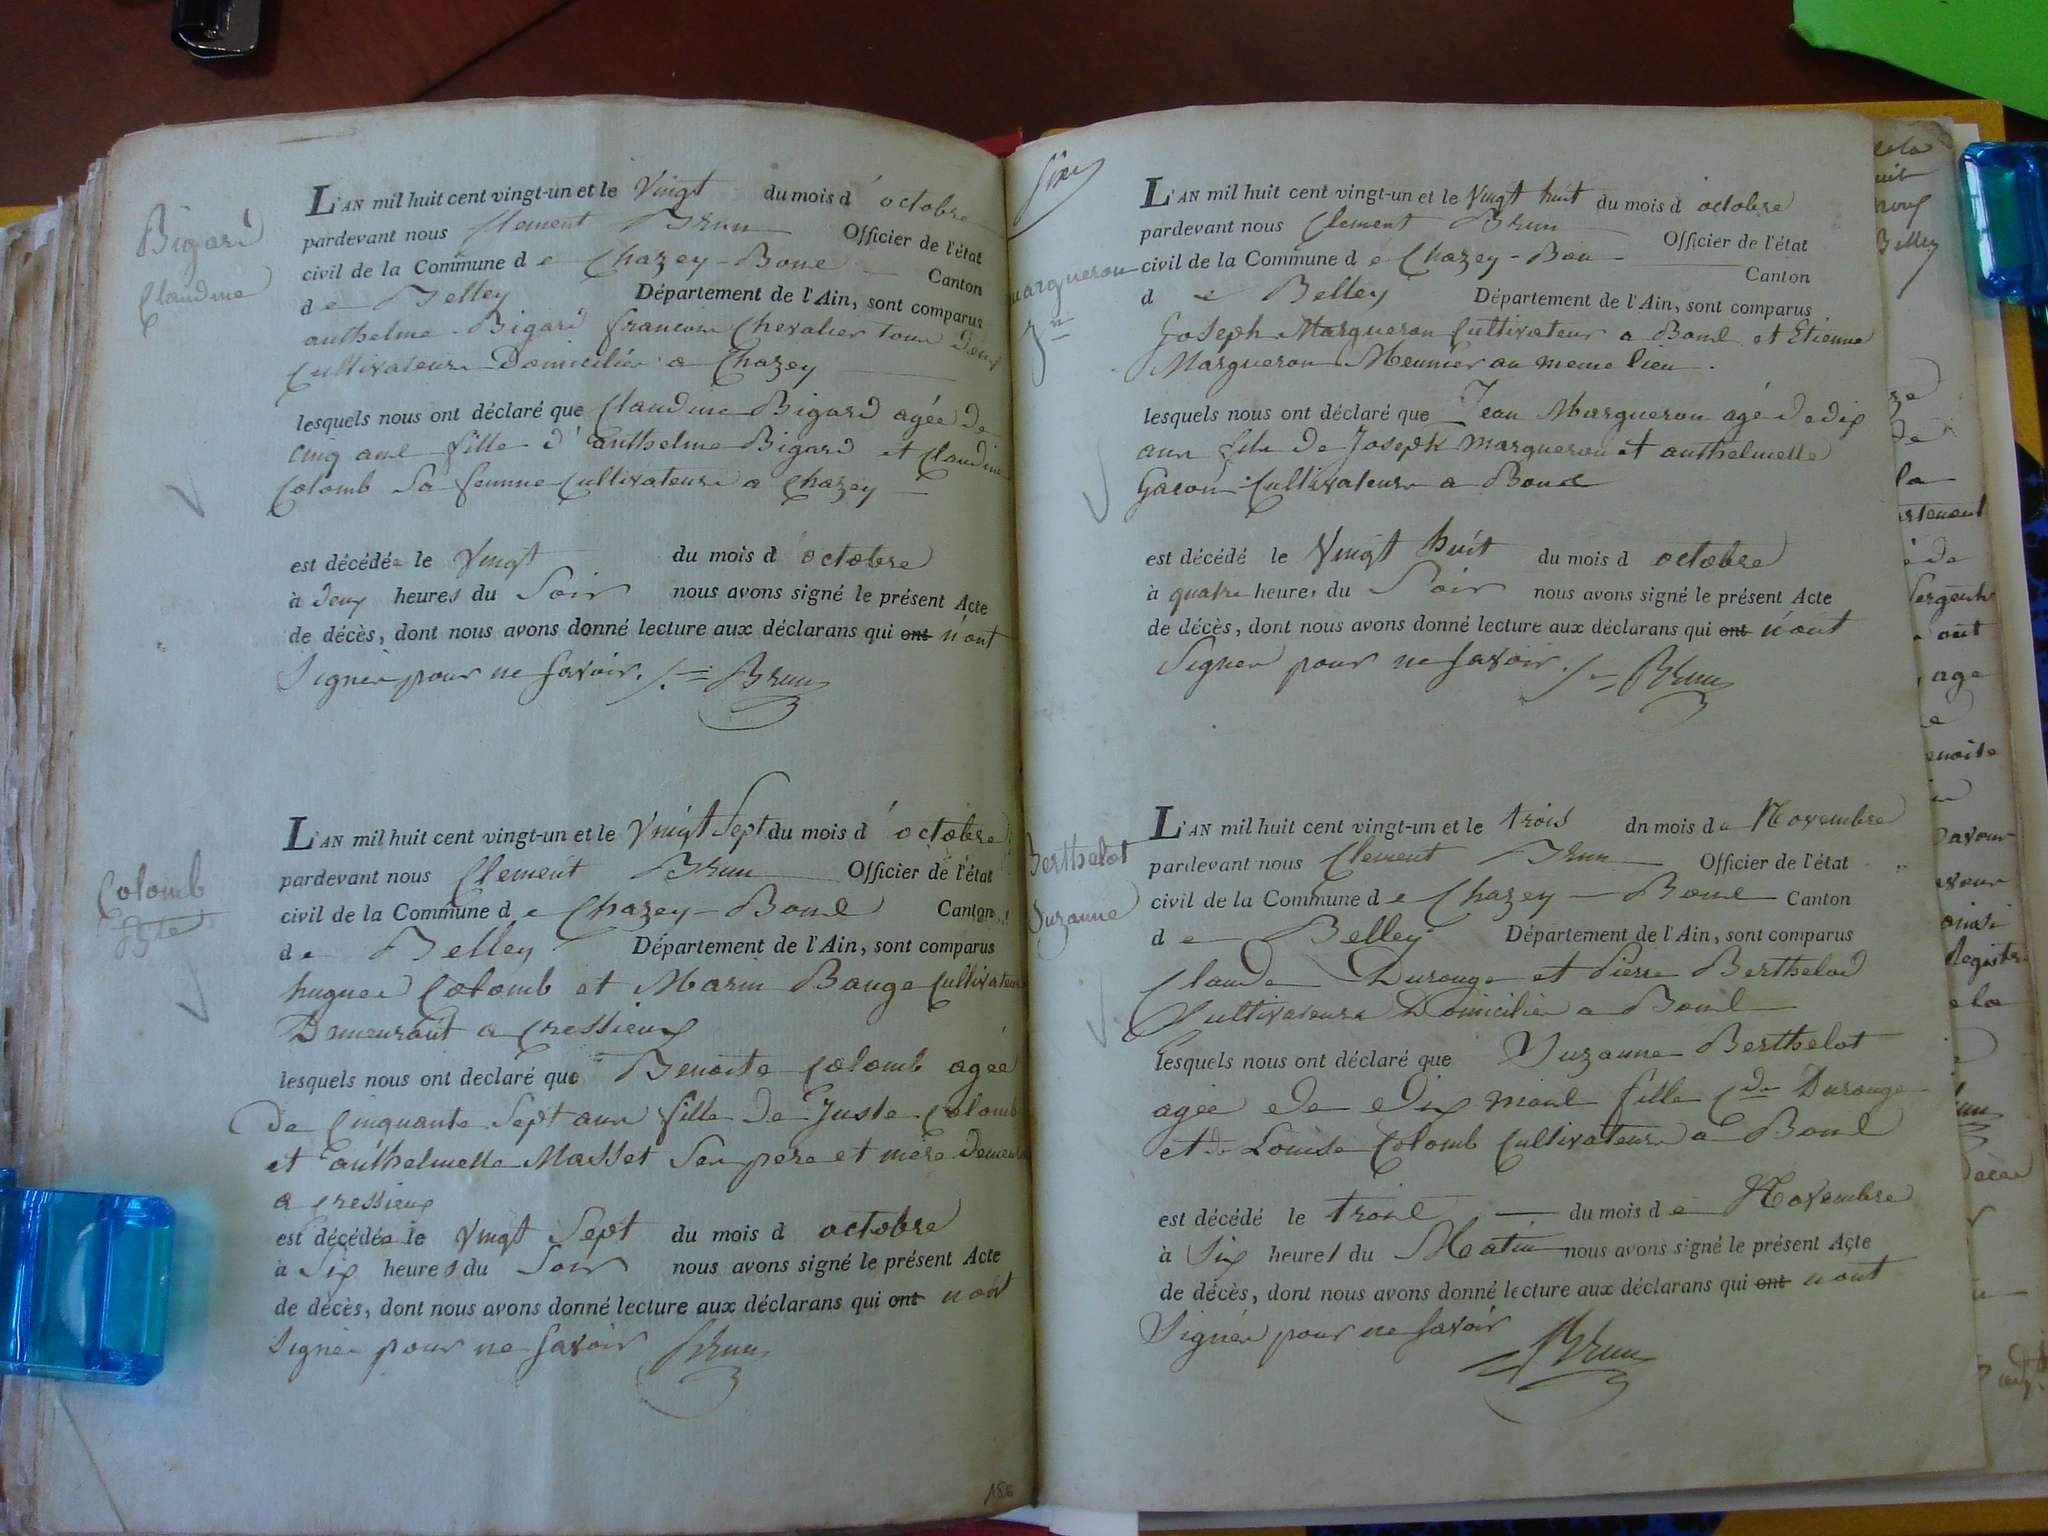 Bigard
Claudine
L'AN mil huit cent vingt-un et le Vingt du mois d'octobre
pardevant nous Clement Brun Officier de l'état
civil de la Commune de Chazey-Bonc Canton
de Belley Département de l'Ain, sont comparus
anthelme Bigard francois Chevalier tous deux
Cultivateurs Domiciliés a Chazey
lesquels nous ont déclaré que Claudine Bigard agée de
cinq ans fille d'anthelme Bigard et Claudine
Colomb Sa femme Cultivateurs a Chazey
est décédée le Vingt du mois d'octobre
à deux heures du Soir nous avons signé le présent Acte
de décès, dont nous avons donné lecture aux déclarans qui ont n'ont
Signer pour ne Savoir. Brun
Colomb
Bte
L'AN mil huit cent vingt-un et le Vingt Sept du mois d'octobre
pardevant nous Clement Brun Officier de l'état
civil de la Commune de Chazey-Bons Canton
de Belley Département de l'Ain, sont comparus
hugues Colomb et Marin Bauge Cultivateurs
Demeurant a Cressieux
lesquels nous ont declaré que Benoite Colomb agée
de Cinquante Sept ans fille de Juste Colomb
et anthelmette Masset Ses pere et mère
a Cressieux
est décédée le Vingt Sept du mois d octobre
à Six heures du Soir nous avons signé le présent Acte
de décès, dont nous avons donné lecture aux déclarans qui ont n'ont
Signer pour ne Savoir Brun
186
Margueron
Jn
L'AN mil huit cent vingt-un et le Vingt huit du mois d octobre
pardevant nous Clement Brun Officier de l'état
civil de la Commune de Chazey-Bon Canton
de Belley Département de l'Ain, sont comparus
Joseph Margueron Cultivateur a Bons et Etienne
Margueron Meunier au meme lieu.
lesquels nous ont déclaré que Jean Margueron agé de dix
ans fils de Joseph Margueron et anthelmette
Gacon Cultivateurs a Bons
est décédé le Vingt huit du mois d octobre
à quatre heures du Soir nous avons signé le présent Acte
de décès, dont nous avons donné lecture aux déclarans qui ont n'ont
Signer pour ne Savoir. Brun
Berthelot
Suzanne
L'AN mil huit cent vingt-un et le trois dn mois de Novembre
pardevant nous Clement Brun Officier de l'état
civil de la Commune de Chazey-Bons Canton
de Belley Département de l'Ain, sont comparus
Claude Durouge et Pierre Berthelod
Cultivateurs Domiciliés a Bons
lesquels nous ont déclaré que Suzanne Berthelot
agée de dix mois fille Cde Durouge
et de Louise Colomb Cultivateurs a Bons
est décédé le trois du mois de Novembre
à Six heures du Matin nous avons signé le présent Acte
de décès, dont nous avons donné lecture aux déclarans qui ont n'ont
Signer pour ne Savoir Brun